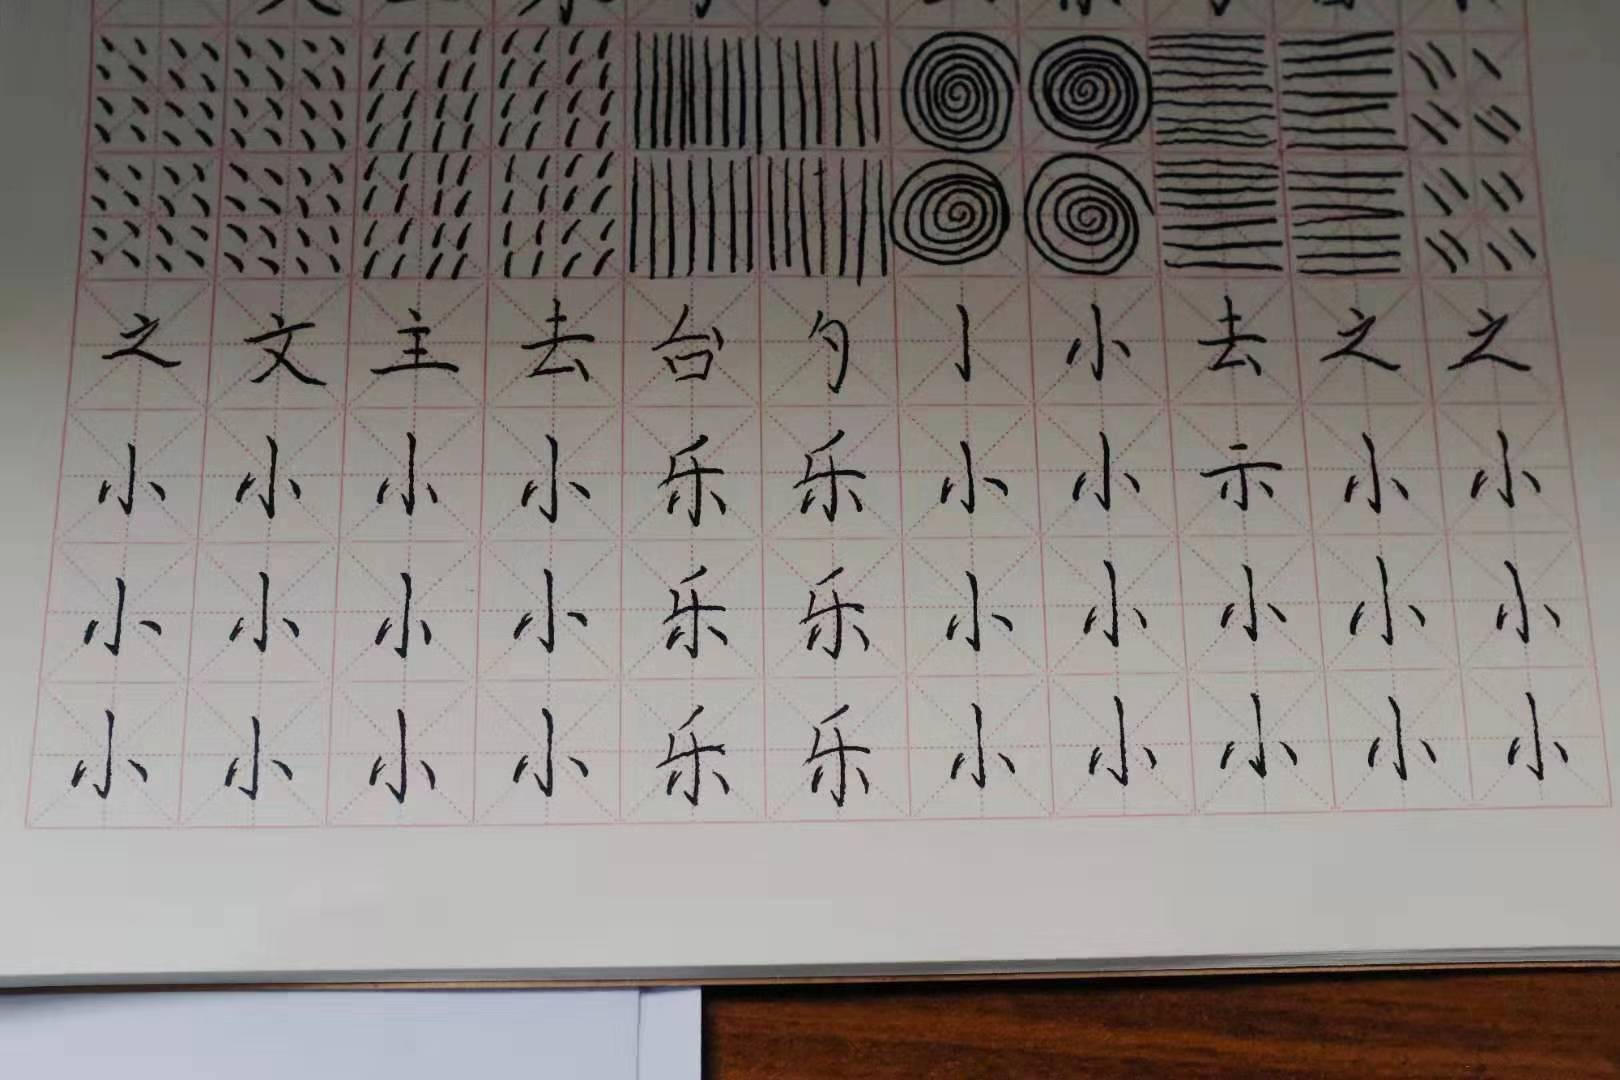 之文主去台勺亅小去之之
小小小小乐乐小小示小小
小小小小乐乐小小小小小
小小小小乐乐小小小小小